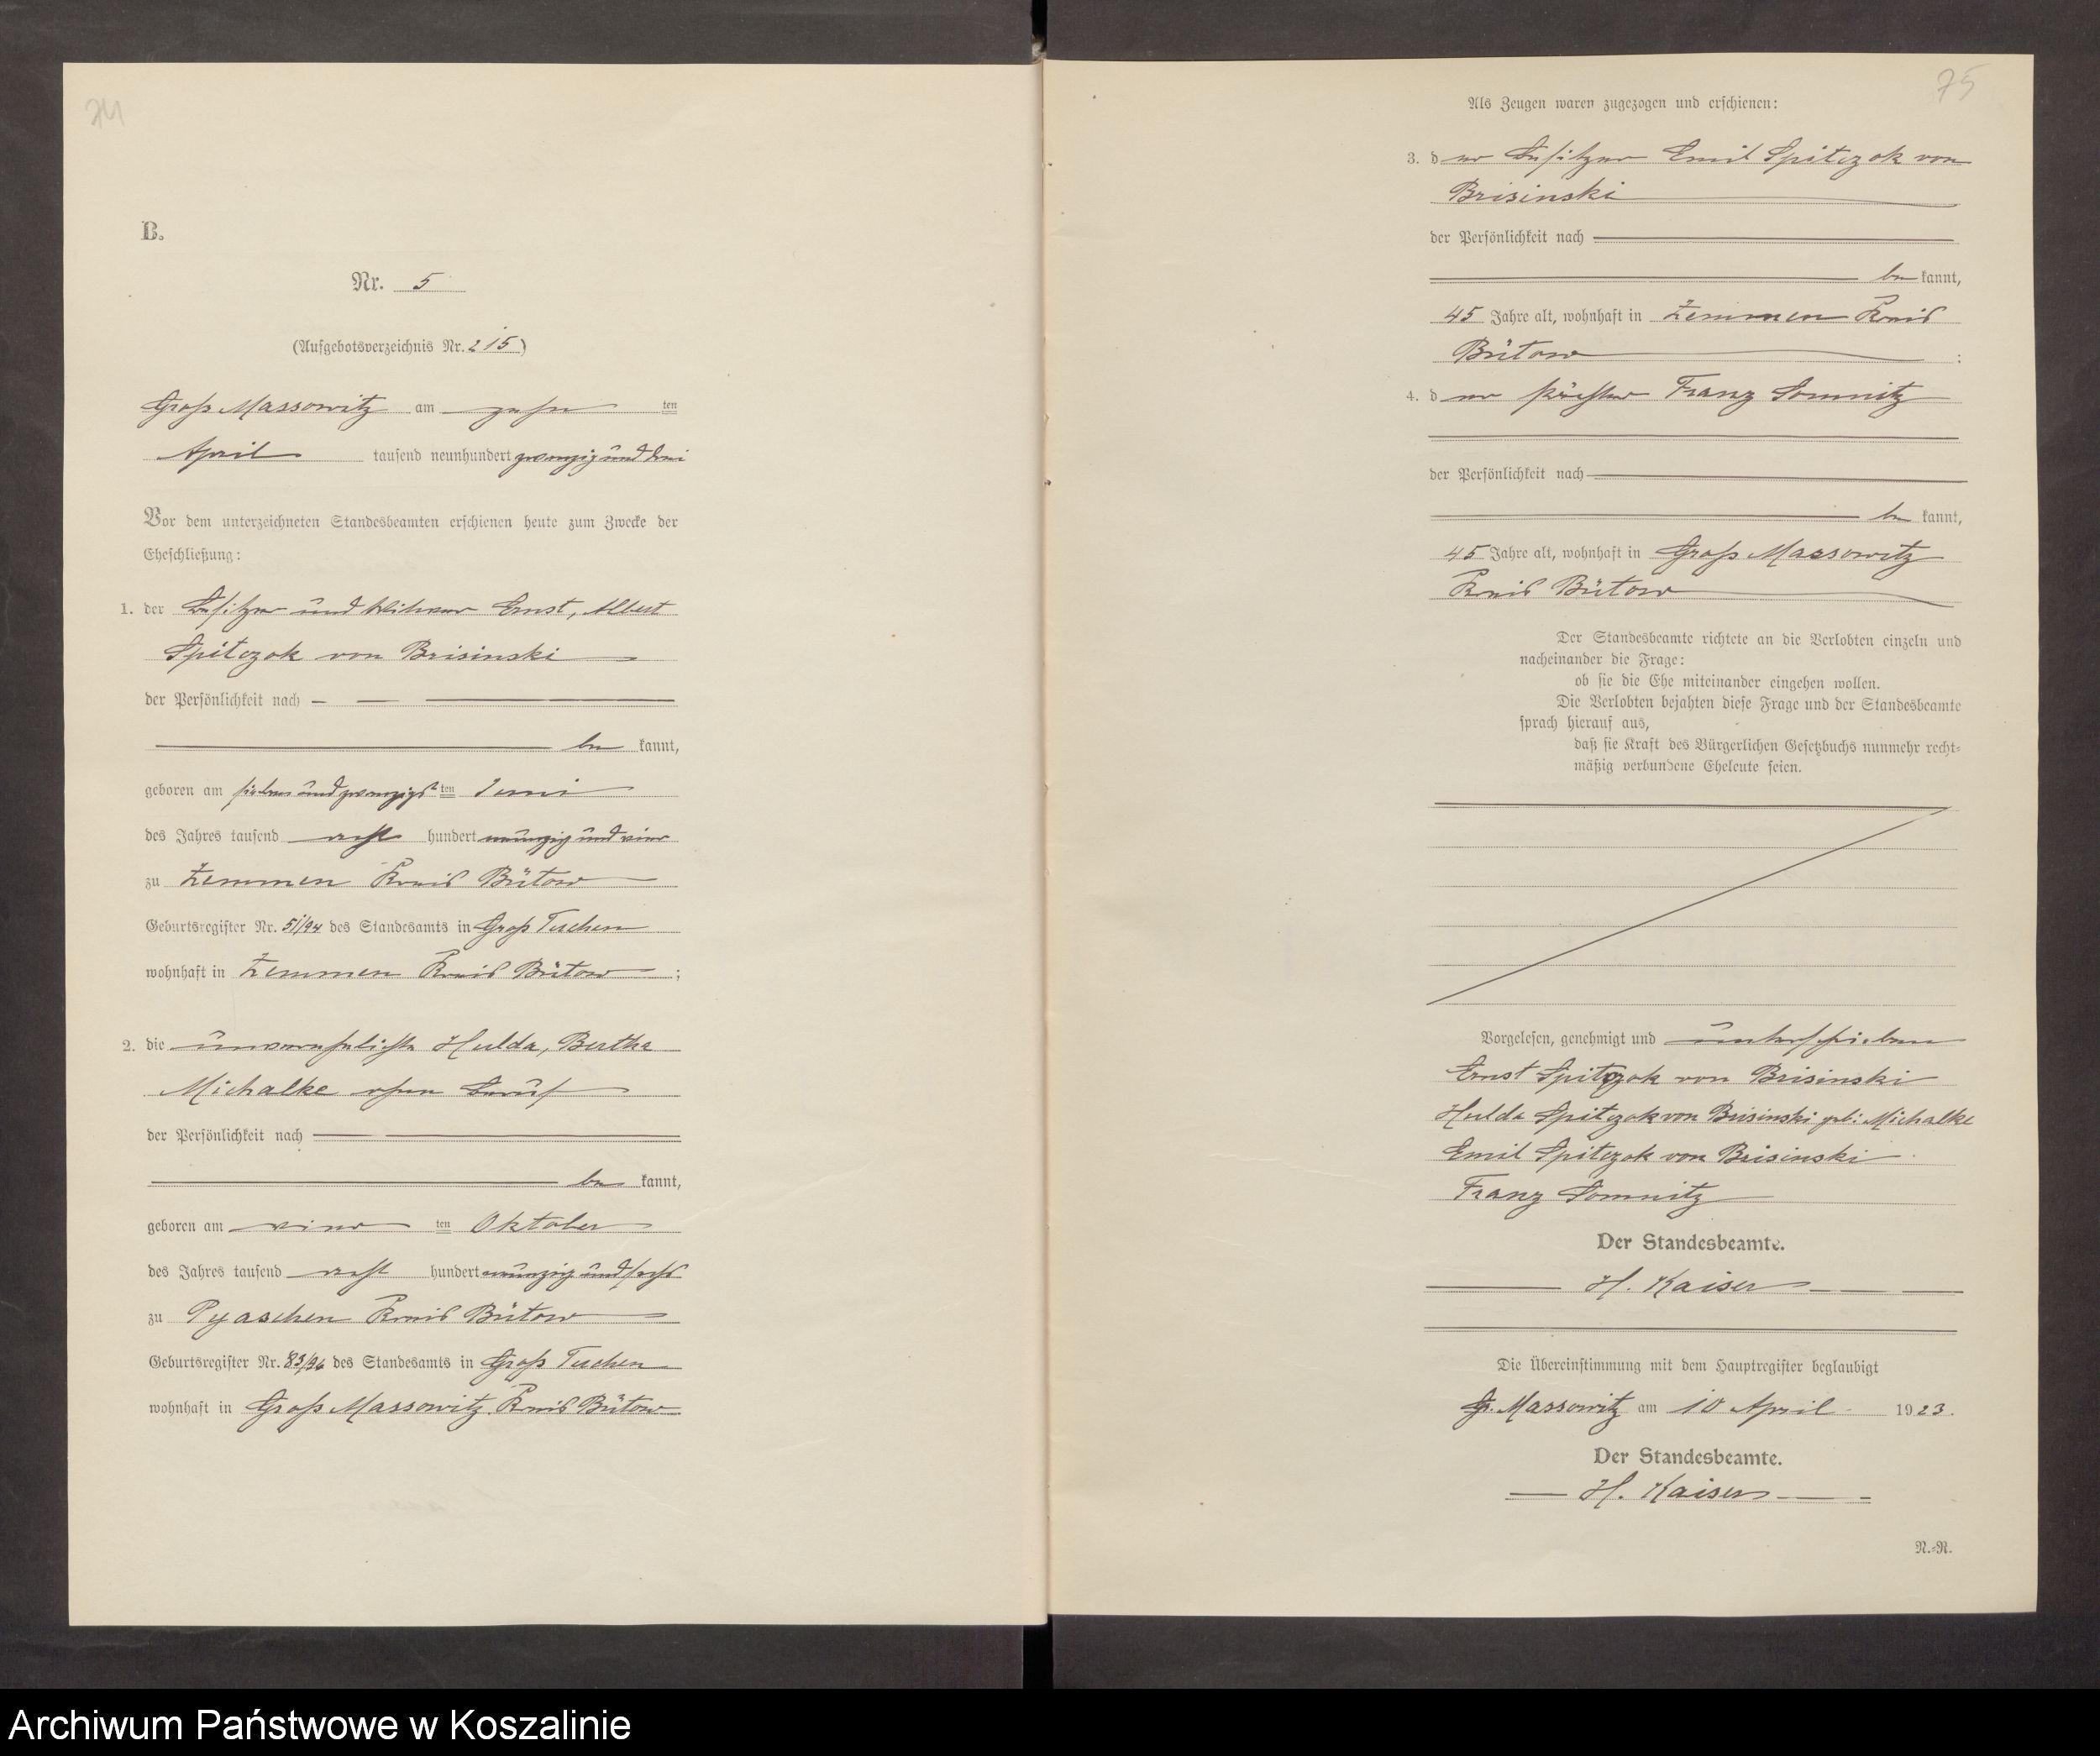 24
B.
Nr. 5
(Aufgebotsverzeichnis Nr. 215)
Groß Massowitz am zehn ten
April tausend neunhundert zwanzig und drei
Vor dem unterzeichneten Standesbeamten erschienen heute zum Zwecke der
Eheschließung:
1. der Besitzer und Witwer Ernst, Albert
Spitczok von Brisinski
der Persönlichkeit nach
be kannt,
geboren am sieben und zwanzigs ten Juni
des Jahres tausend acht hundert neunzig und vier
zu Zemmen Kreis Bütow
Geburtsregister Nr. 51/94 des Standesamts in Groß Tuchen
wohnhaft in Zemmen Kreis Bütow ;
2. die unverehelichte Hulda, Bertha
Michalke ohne Beruf
der Persönlichkeit nach
be kannt,
geboren am vier ten Oktober
des Jahres tausend acht hundert neunzig und sechs
zu Pyaschen Kreis Bütow
Geburtsregister Nr. 83/96 des Standesamts in Groß Tuchen
wohnhaft in Groß Massowitz Kreis Bütow
75
Als Zeugen waren zugezogen und erschienen:
3. d er Besitzer Emil Spitczok von
Brisinski
der Persönlichkeit nach
be kannt,
45 Jahre alt, wohnhaft in Zemmen Kreis
Bütow ;
4. d er Franz Somnitz
der Persönlichkeit nach
be kannt,
45 Jahre alt, wohnhaft in Groß Massowitz
Kreis Bütow
Der Standesbeamte richtete an die Verlobten einzeln und
nacheinander die Frage:
ob sie die Ehe miteinander eingehen wollen.
Die Verlobten bejahten diese Frage und der Standesbeamte
sprach hierauf aus,
daß sie Kraft des Bürgerlichen Gesetzbuchs nunmehr recht-
mäßig verbundene Eheleute seien.
Vorgelesen, genehmigt und unterschrieben
Ernst Spitczok von Brisinski
Hulda Spitczok von Brisinski geb: Michalke
Emil Spitczok von Brisinski
Franz Somnitz
Der Standesbeamte.
H. Kaiser
Die Übereinstimmung mit dem Hauptregister beglaubigt
Gr. Massowitz am 10 April 1923.
Der Standesbeamte.
H. Kaiser
N.-R.
Archiwum Państwowe w Koszalinie